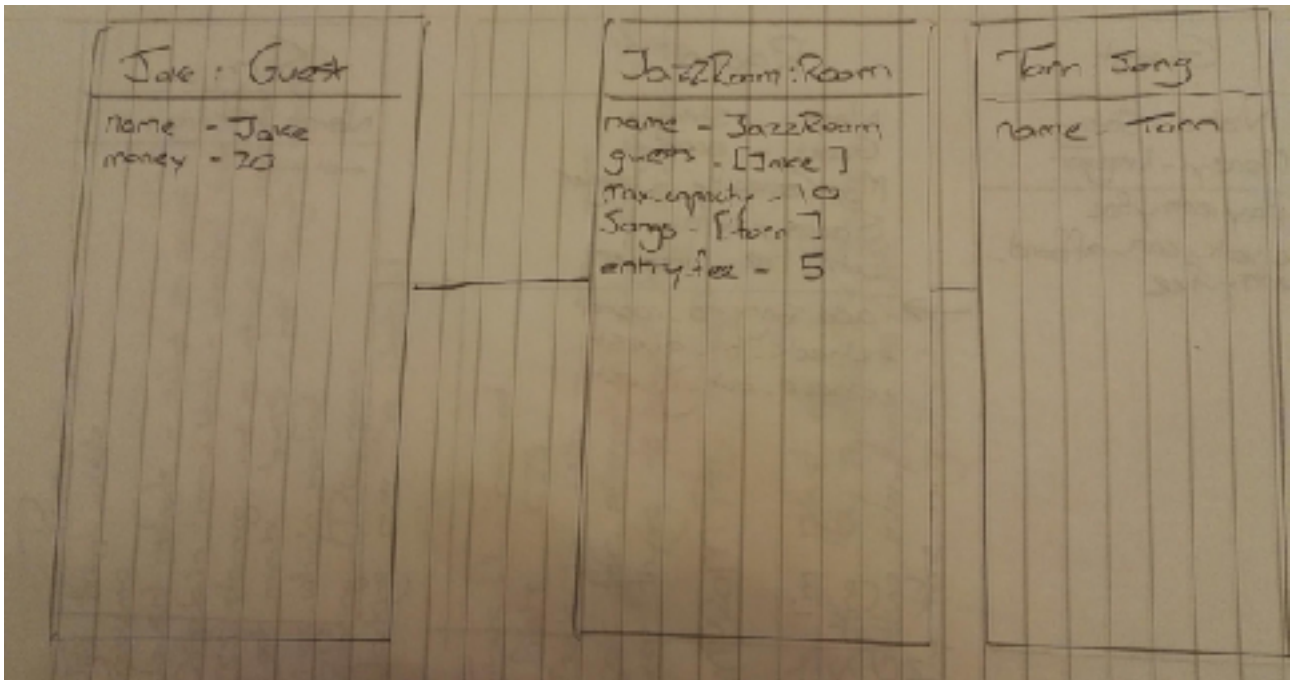 Jake : Guest
name - Jake
money - 20
JazzRoom : Room
name - JazzRoom
guests - [Jake]
max_capacity - 10
Songs - [torn]
entry_fee - 5
Torn Song
name - Torn